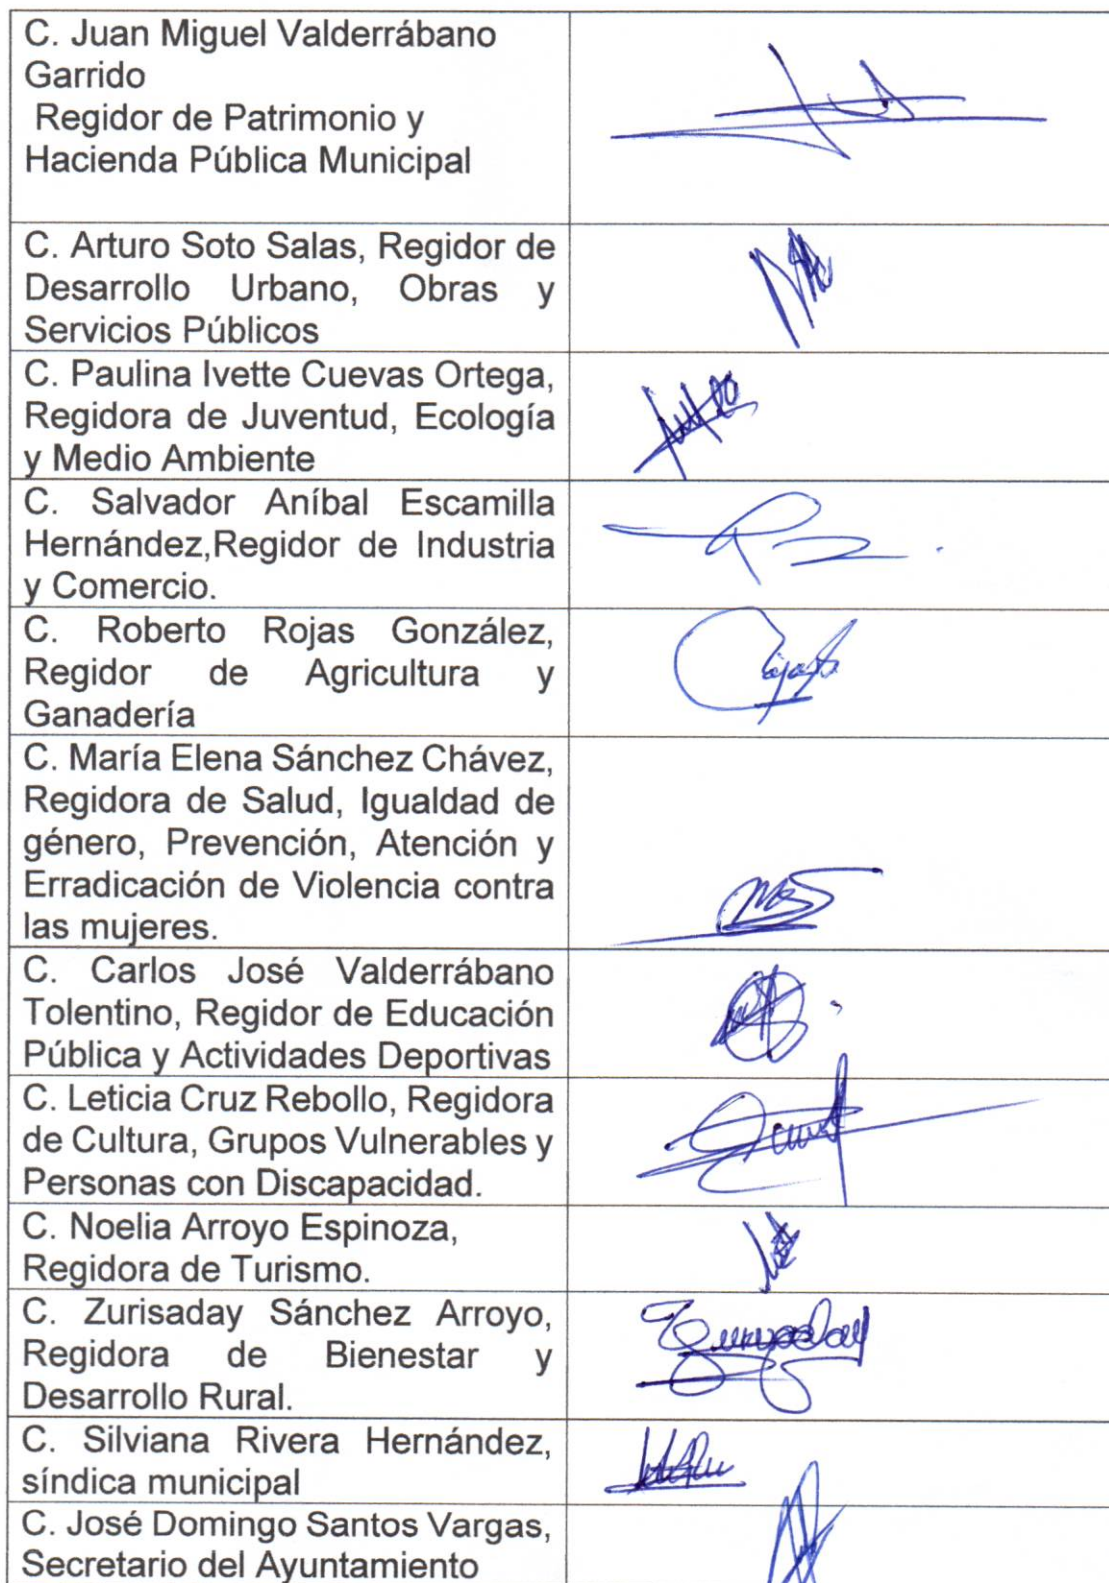 C. Juan Miguel Valderrábano
Garrido
Regidor de Patrimonio y
Hacienda Pública Municipal
C. Arturo Soto Salas, Regidor de
Desarrollo Urbano, Obras y
Servicios Públicos
C. Paulina Ivette Cuevas Ortega,
Regidora de Juventud, Ecología
y Medio Ambiente
C. Salvador Aníbal Escamilla
Hernández,Regidor de Industria
y Comercio.
C. Roberto Rojas González,
Regidor de Agricultura y
Ganadería
C. María Elena Sánchez Chávez,
Regidora de Salud, Igualdad de
género, Prevención, Atención y
Erradicación de Violencia contra
las mujeres.
C. Carlos José Valderrábano
Tolentino, Regidor de Educación
Pública y Actividades Deportivas
C. Leticia Cruz Rebollo, Regidora
de Cultura, Grupos Vulnerables y
Personas con Discapacidad.
C. Noelia Arroyo Espinoza,
Regidora de Turismo.
C. Zurisaday Sánchez Arroyo,
Regidora de Bienestar y
Desarrollo Rural.
C. Silviana Rivera Hernández,
síndica municipal
C. José Domingo Santos Vargas,
Secretario del Ayuntamiento